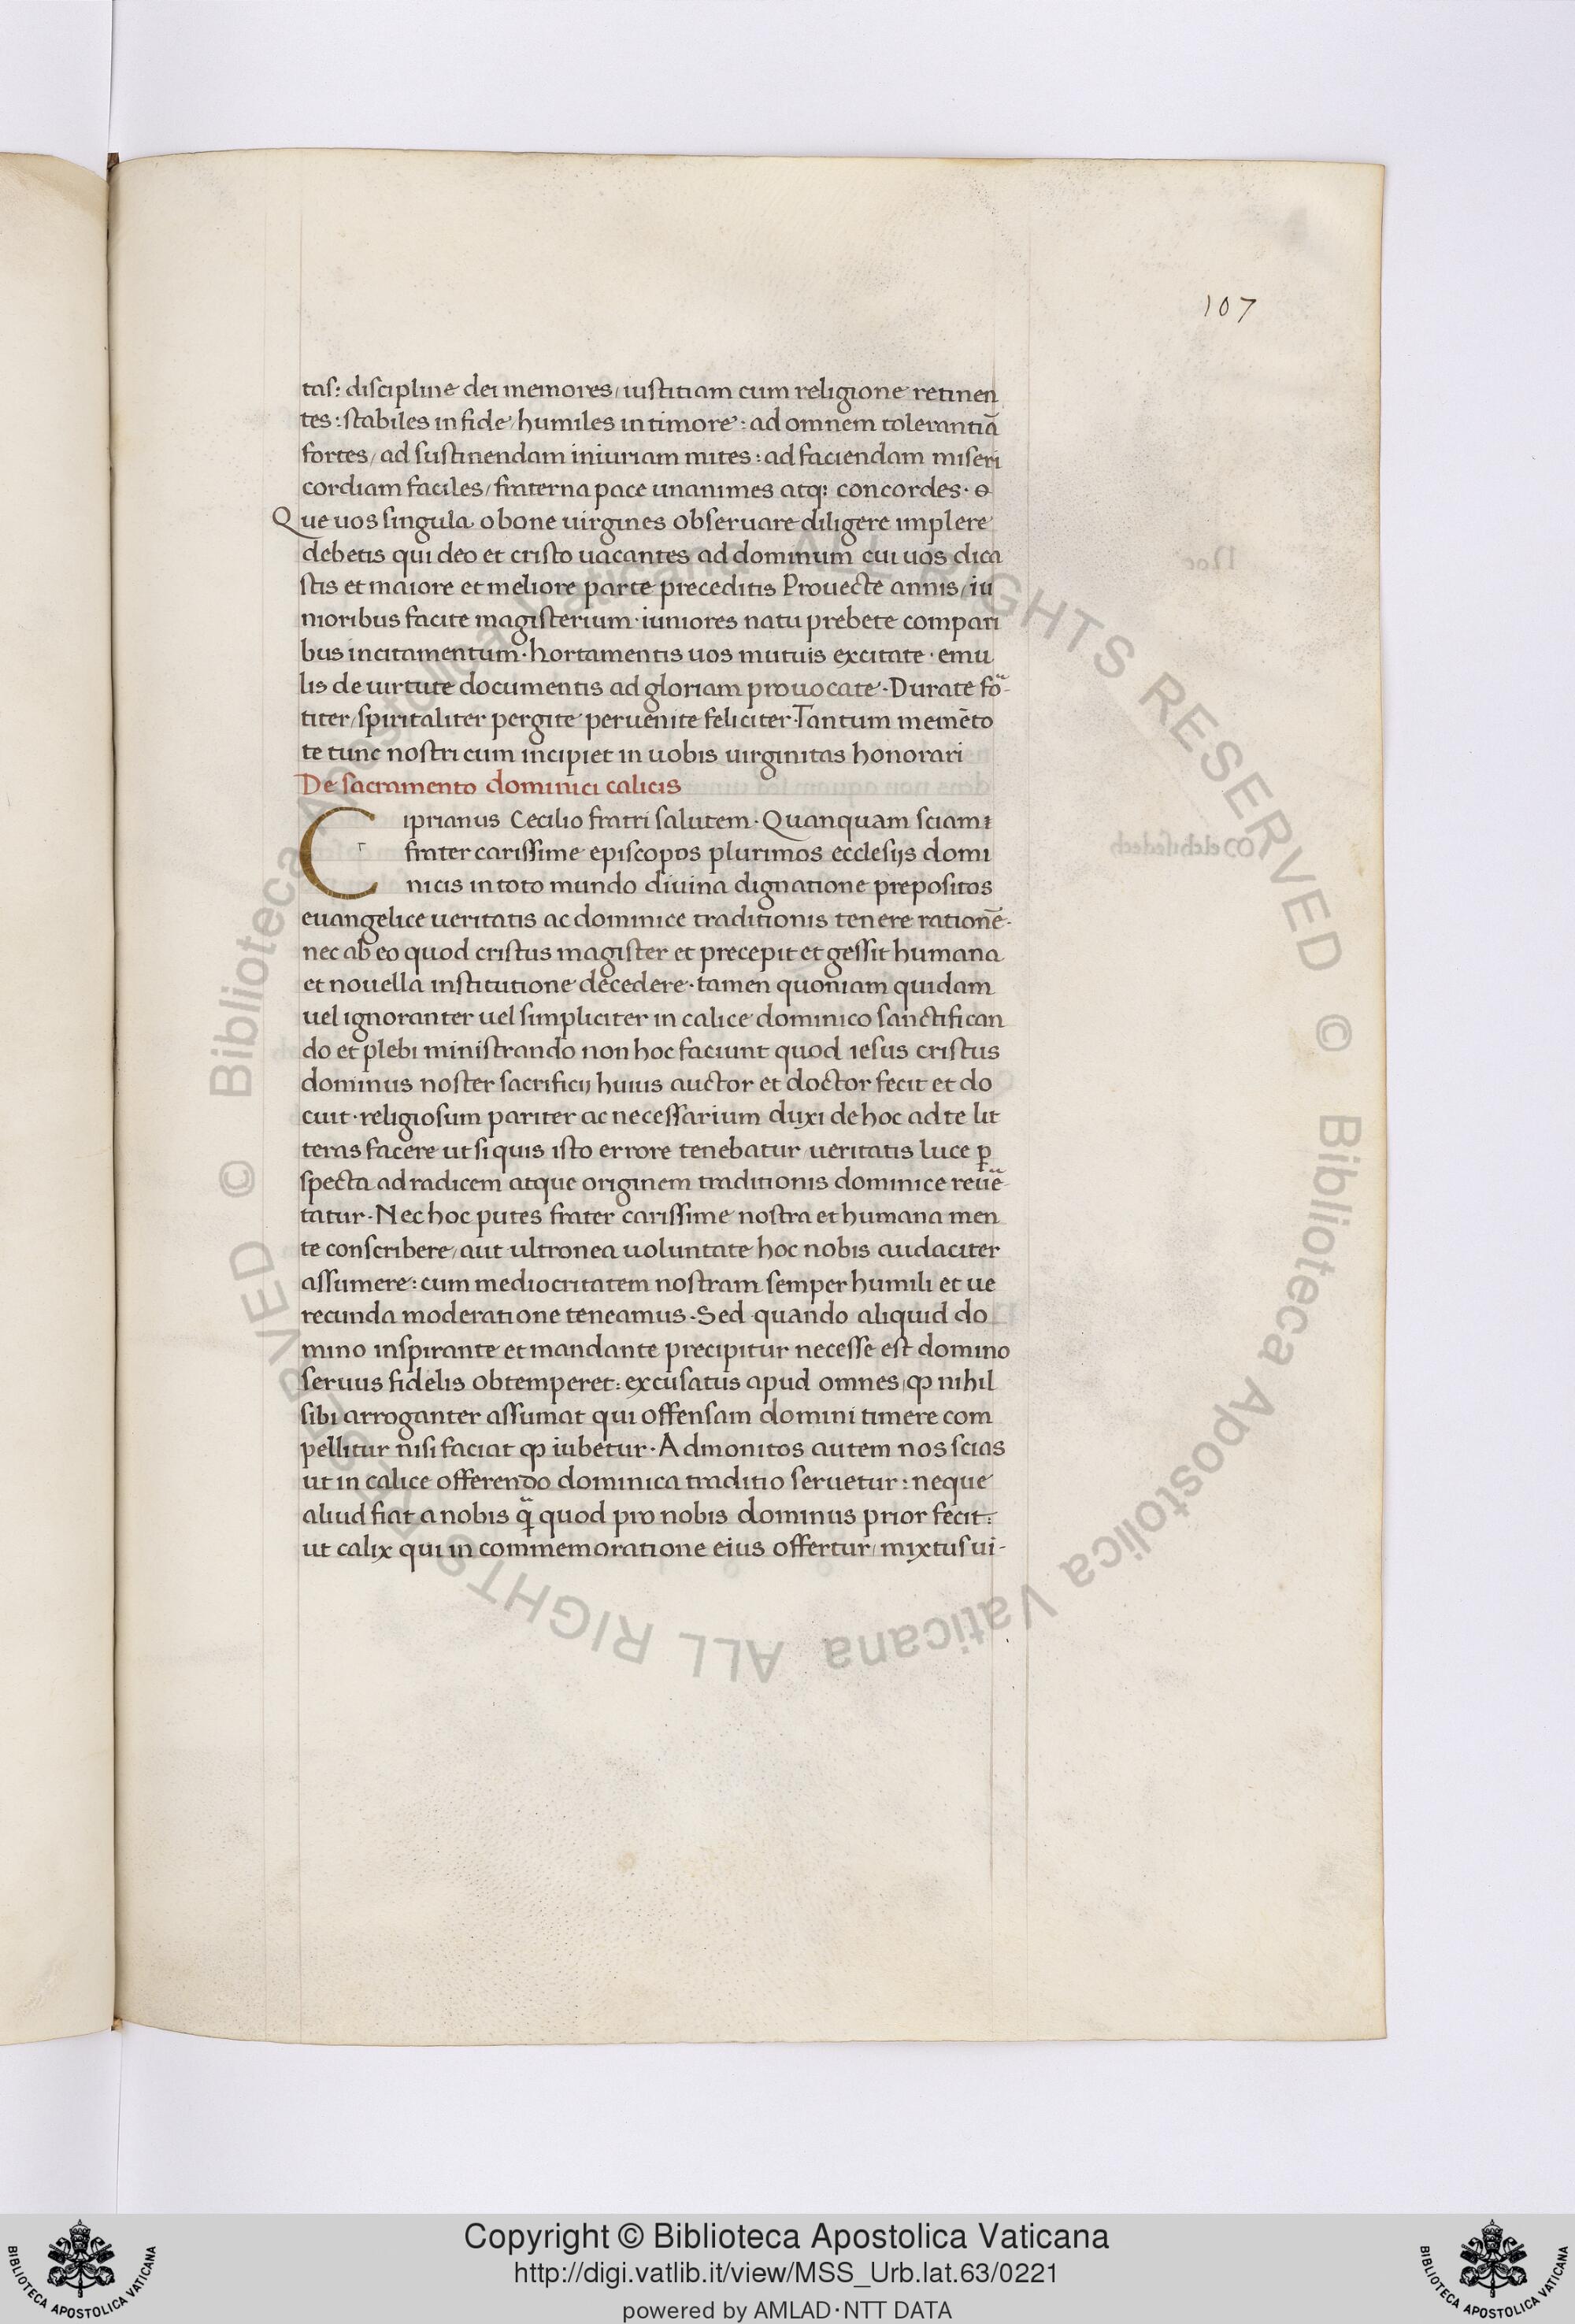 107
tas: discipline dei memores/ iustitiam cum religione retinen
tes: stabiles in fide/ humiles in timore: ad omnem tolerantiā
fortes/ ad sustinendam iniuriam mites: ad faciendam miseri
cordiam faciles/ fraterna pace unanimes atq: concordes·
Que uos singula o bone uirgines obseruare diligere implere
debetis qui deo et cristo uacantes ad dominum cui uos dica
stis et maiore et meliore parte preceditis Prouecte annis/ iu
nioribus facite magisterium· iuniores natu prebete compari
bus incitamentum· hortamentis uos mutuis excitate· emu
lis de uirtute documentis ad gloriam prouocate· Durate fo̅-
titer/ spiritaliter pergite peruenite feliciter· Tantum memēto
te tunc nostri cum incipiet in uobis uirginitas honorari
De sacramento dominici calicis
Ciprianus Cecilio fratri salutem· Quanquam sciam
frater carissime episcopos plurimos ecclesijs domi
nicis in toto mundo diuina dignatione prepositos
euangelice ueritatis ac dominice traditionis tenere rationē·
nec ab eo quod cristus magister et precepit et gessit humana
et nouella institutione decedere· tamen quoniam quidam
uel ignoranter uel simpliciter in calice dominico sanctifican
do et plebi ministrando non hoc faciunt quod iesus cristus
dominus noster sacrificij huius auctor et doctor fecit et do
cuit· religiosum pariter ac necessarium duxi de hoc ad te lit
teras facere ut si quis isto errore tenebatur/ ueritatis luce ꝑ
specta ad radicem atque originem traditionis dominice reue̅-
tatur· Nec hoc putes frater carissime nostra et humana men
te conscribere/ aut ultronea uoluntate hoc nobis audaciter
assumere: cum mediocritatem nostram semper humili et ue
recunda moderatione teneamus· Sed quando aliquid do
mino inspirante et mandante precipitur necesse est domino
seruus fidelis obtemperet: excusatus apud omnes/ ꝙ nihil
sibi arroganter assumat qui offensam domini timere com
pellitur nisi faciat ꝙ iubetur· Admonitos autem nos scias
ut in calice offerendo dominica traditio seruetur: neque
aliud fiat a nobis q̄ quod pro nobis dominus prior fecit:
ut calix qui in commemoratione eius offertur/ mixtus ui-
© Biblioteca Apostolica Vaticana ALL RIGHTS RESERVED © Biblioteca Apostolica Vaticana ALL RIGHTS RESERVED
BIBLIOTECA APOSTOLICA VATICANA
Copyright © Biblioteca Apostolica Vaticana
http://digi.vatlib.it/view/MSS_Urb.lat.63/0221
powered by AMLAD·NTT DATA
BIBLIOTECA APOSTOLICA VATICANA